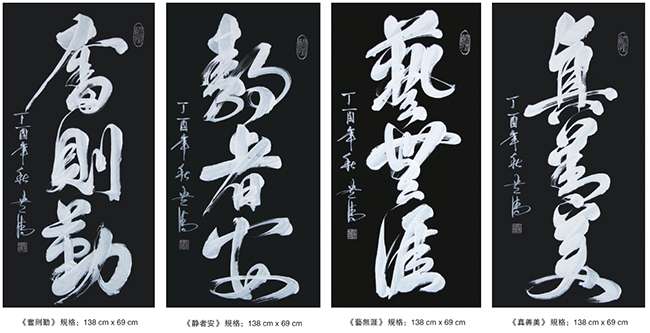 奮則勤
丁酉年秋
靜者安
丁酉年秋
藝無涯
丁酉年秋
真善美
丁酉年秋
《奮則勤》 規格：138 cm x 69 cm
《静者安》 規格：138 cm x 69 cm
《藝無涯》 規格：138 cm x 69 cm
《真善美》 規格：138 cm x 69 cm